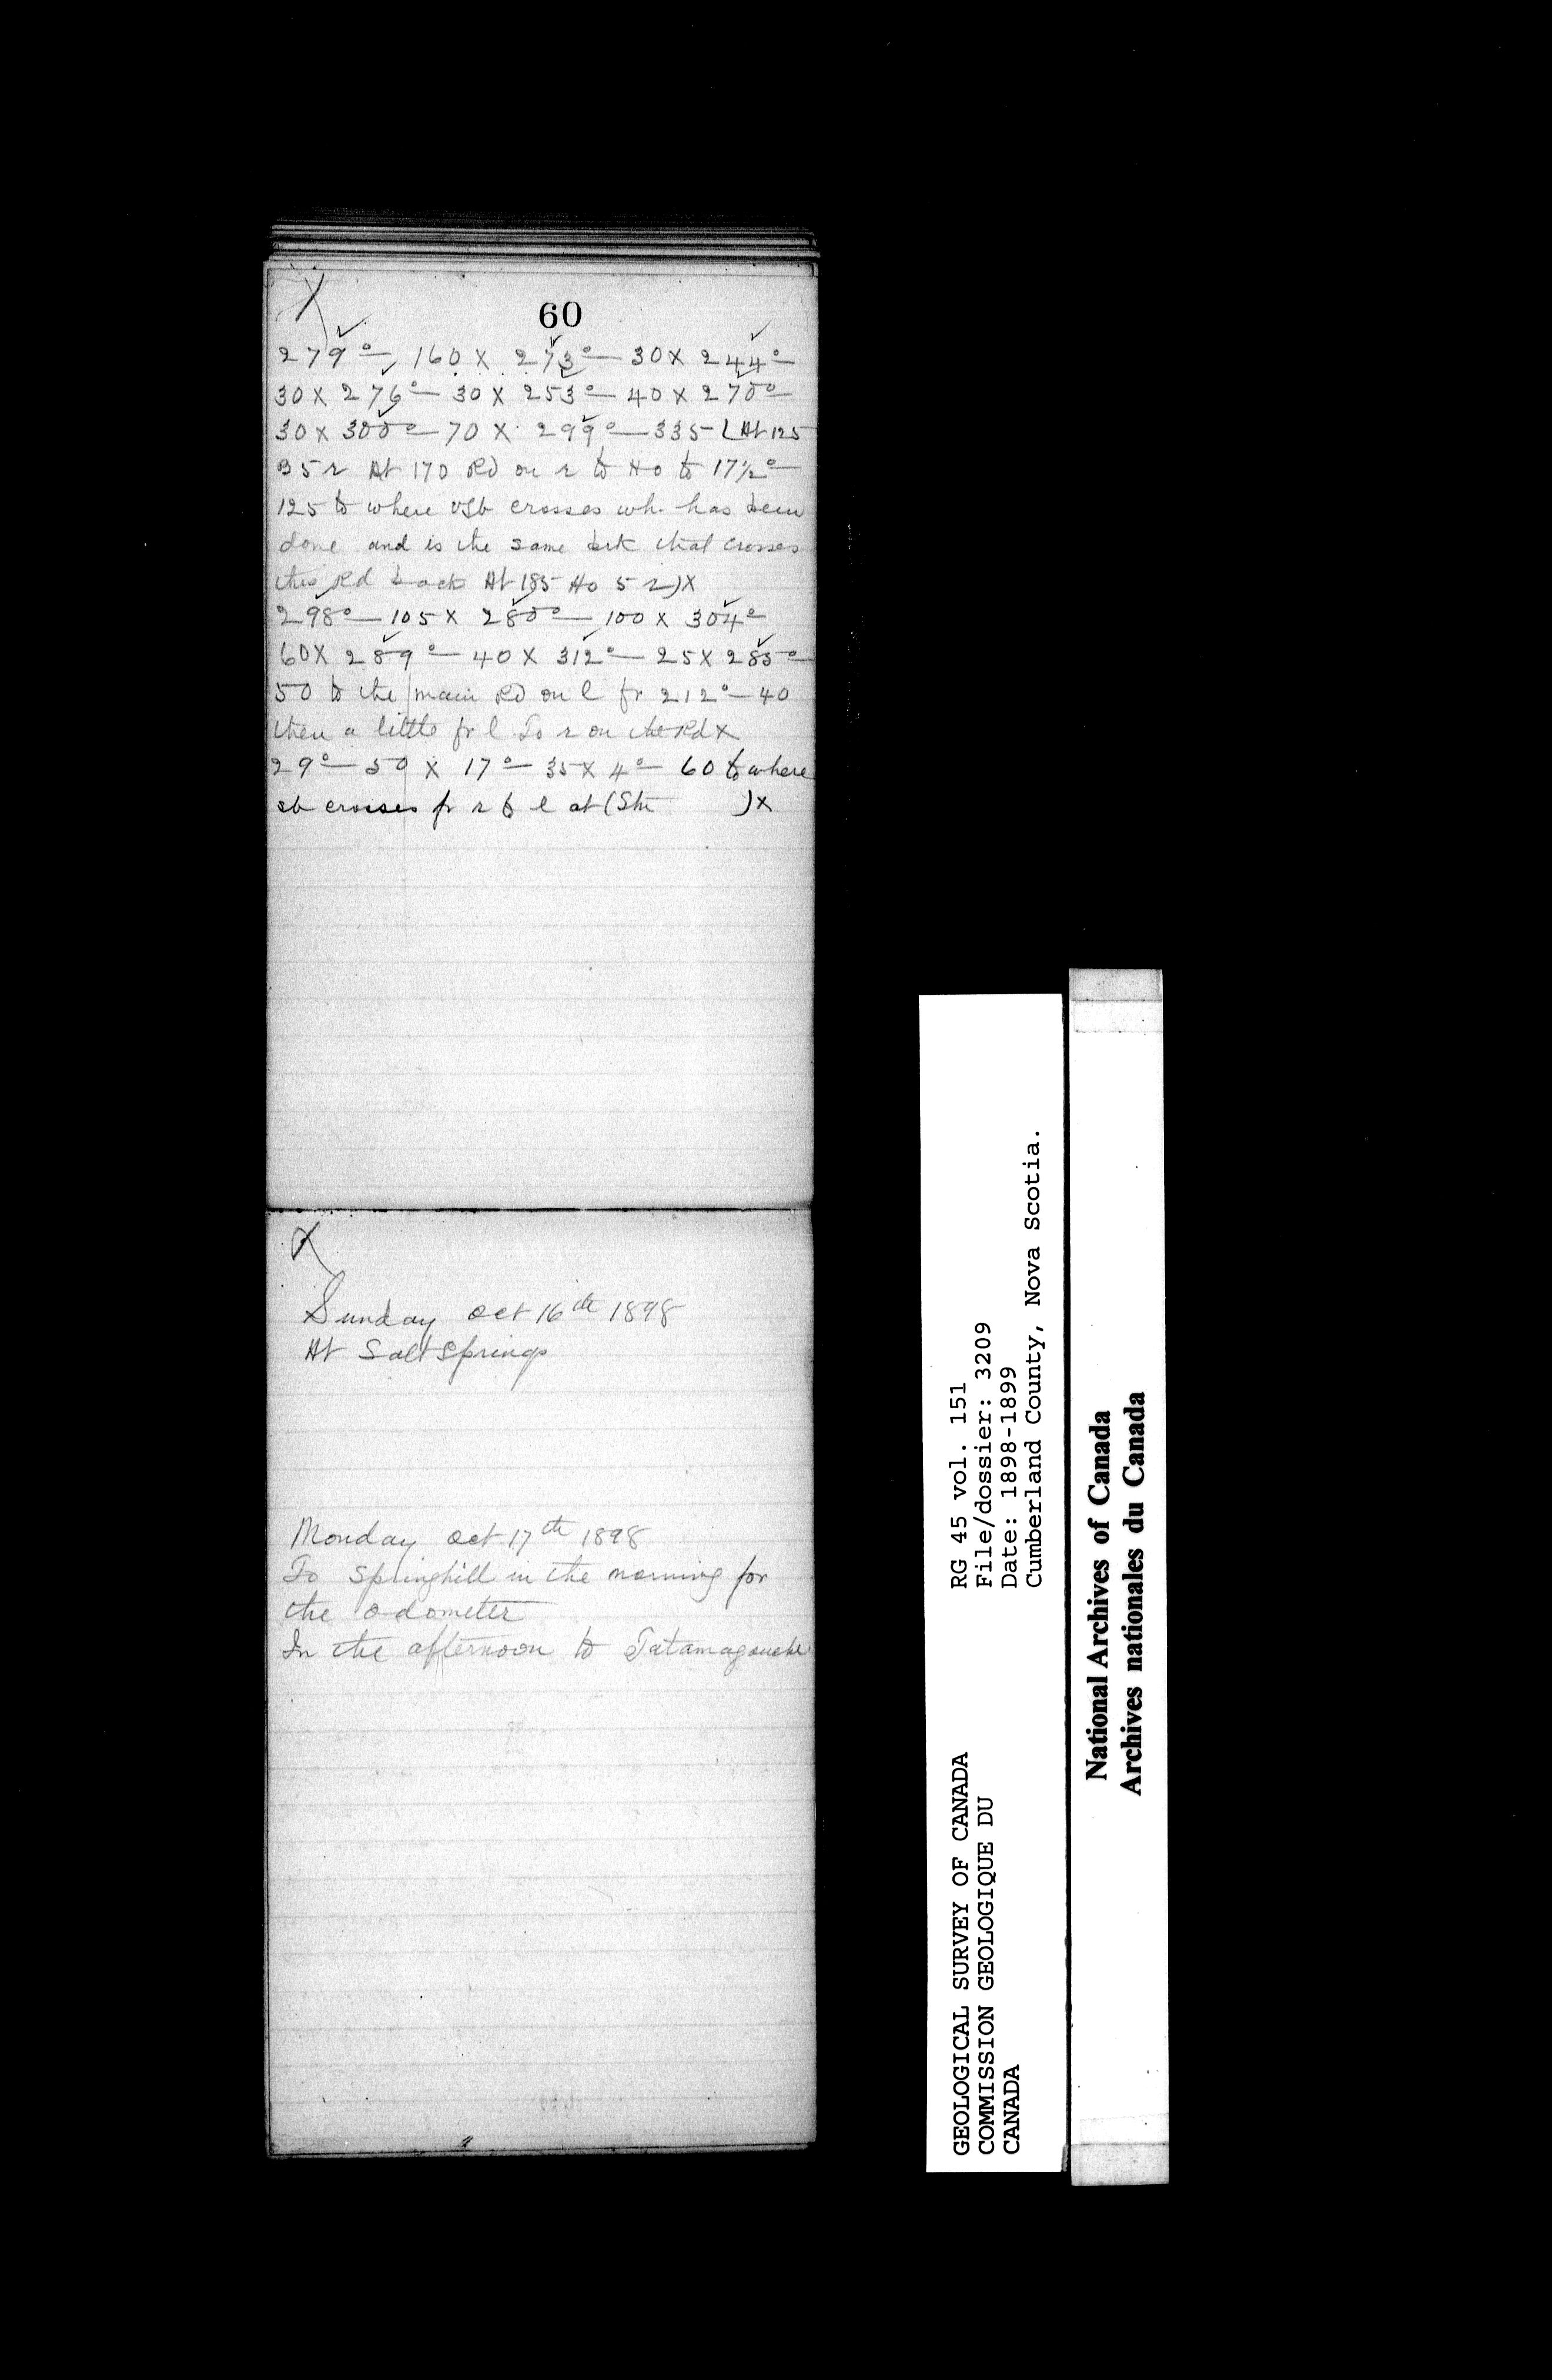 60
279°— 160 X 273°— 30 X 244°—
30 X 276°— 30 X 253°— 40 X 270°—
30 X 300°— 70 X 299°— 335 (At 125
B 5 r At 170 Rd on r to Ho to 17½°—
125 to where vsb crosses wh. has been
done and is the same brk that crosses
this Rd back At 185 Ho 5 r) X
298°— 105 X 280°— 100 X 304°—
60 X 289°— 40 X 312°— 25 X 285°—
50 to the main Rd on l fr 212°— 40
then a little fr l To r on the Rd X
29°— 50 X 17°— 35 X 4°— 60 to where
sb crosses fr r to l at (Str ) X
X
Sunday Oct 16th 1898
At Salt Springs
Monday Oct 17th 1898
To Springhill in the morning for
the odometer
In the afternoon to Tatamagouche
RG 45 vol. 151
File/dossier: 3209
Date: 1898-1899
Cumberland County, Nova Scotia.
GEOLOGICAL SURVEY OF CANADA
COMMISSION GEOLOGIQUE DU
CANADA
National Archives of Canada
Archives nationales du Canada